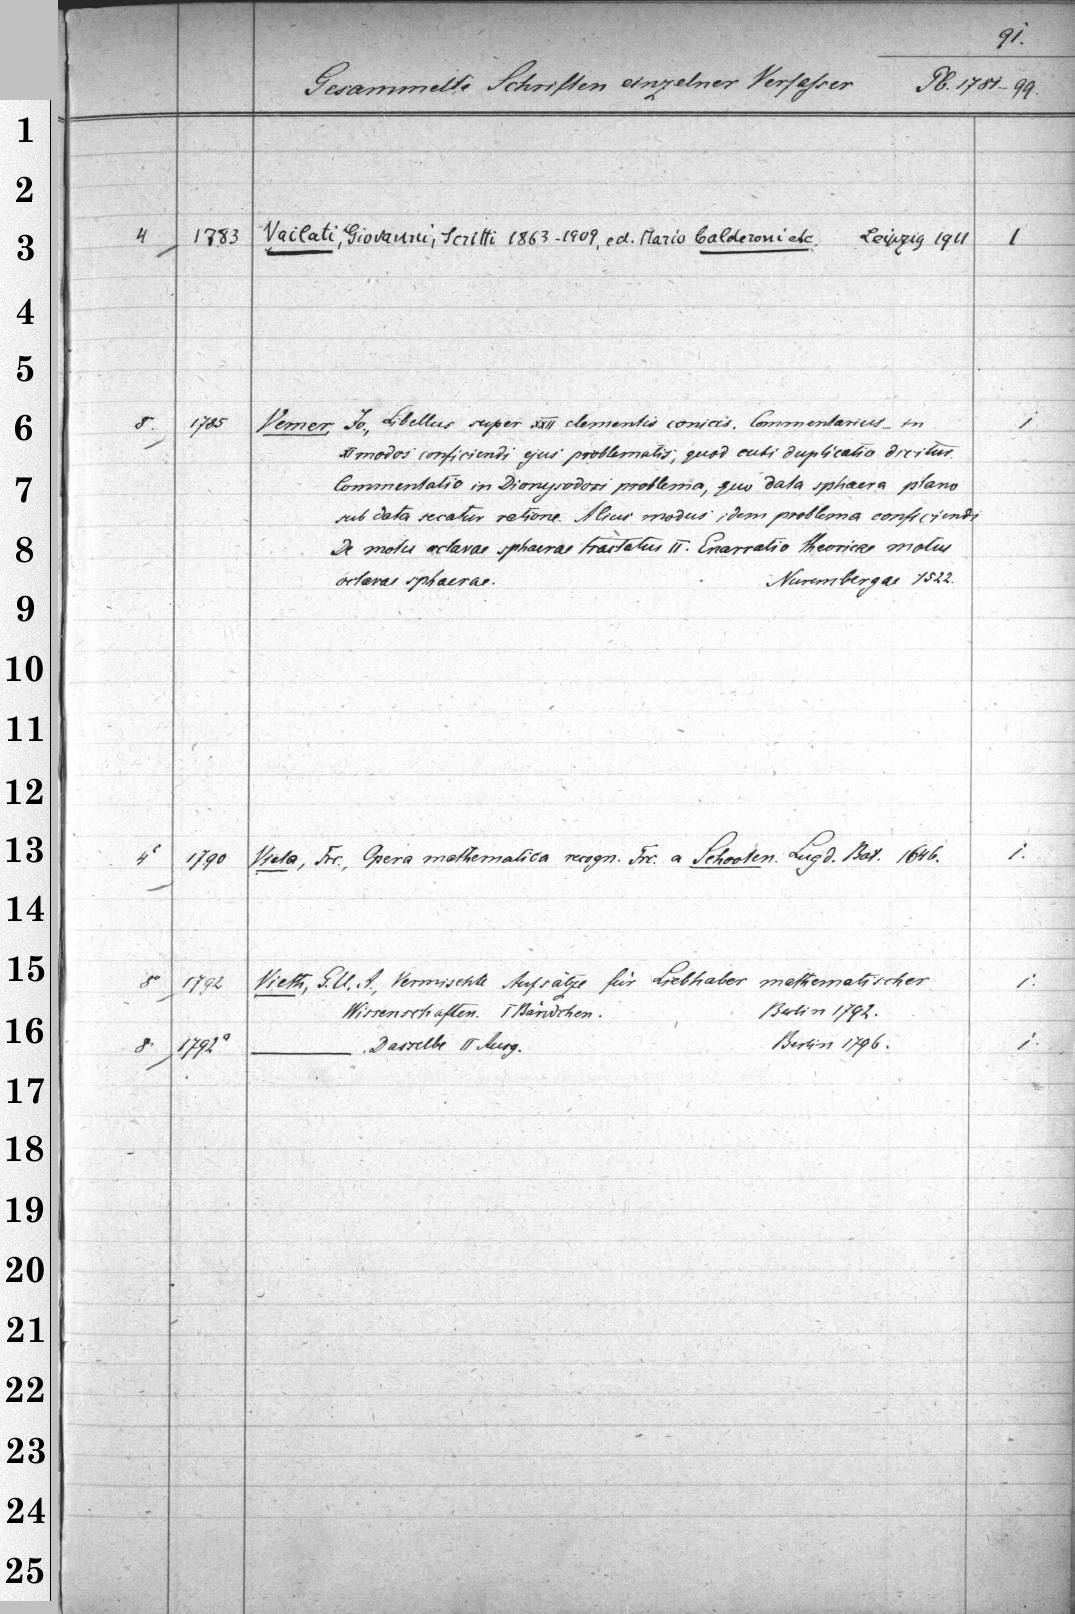 91.
Gesammelte Schriften einzelner Verfasser Pl. 1781-99.
1
2
3 4 1783 Vailati, Giovanni, Scritti 1863-1909, ed. Mario Calderoni etc. Leipzig 1911 1
4
5
6 8. 1785 Verner, Jo., Libellus super XXII elementis conicis. Commentarius in 1
XI modos conficiendi ejus problematis, quod cubi duplicatio dicitur.
7 Commentatio in Dionysodori problema, quo data sphaera plano
sub data secatur ratione. Alius modus idem problema conficiendi
8 De motu octavae sphaerae tractatus II. Enarratio theoricae motus
octavae sphaerae. Nurembergae 1522.
9
10
11
12
13 4° 1790 Vieta, Frc., Opera mathematica recogn. Frc. a Schooten. Lugd. Bat. 1646. 1.
14
15 8° 1792 Vieth, G.U.A., Vermischte Aufsätze für Liebhaber mathematischer 1.
Wissenschaften. I Bändchen. Berlin 1792.
16 8° 1792a Dasselbe II Ausg. Berlin 1796. 1.
17
18
19
20
21
22
23
24
25